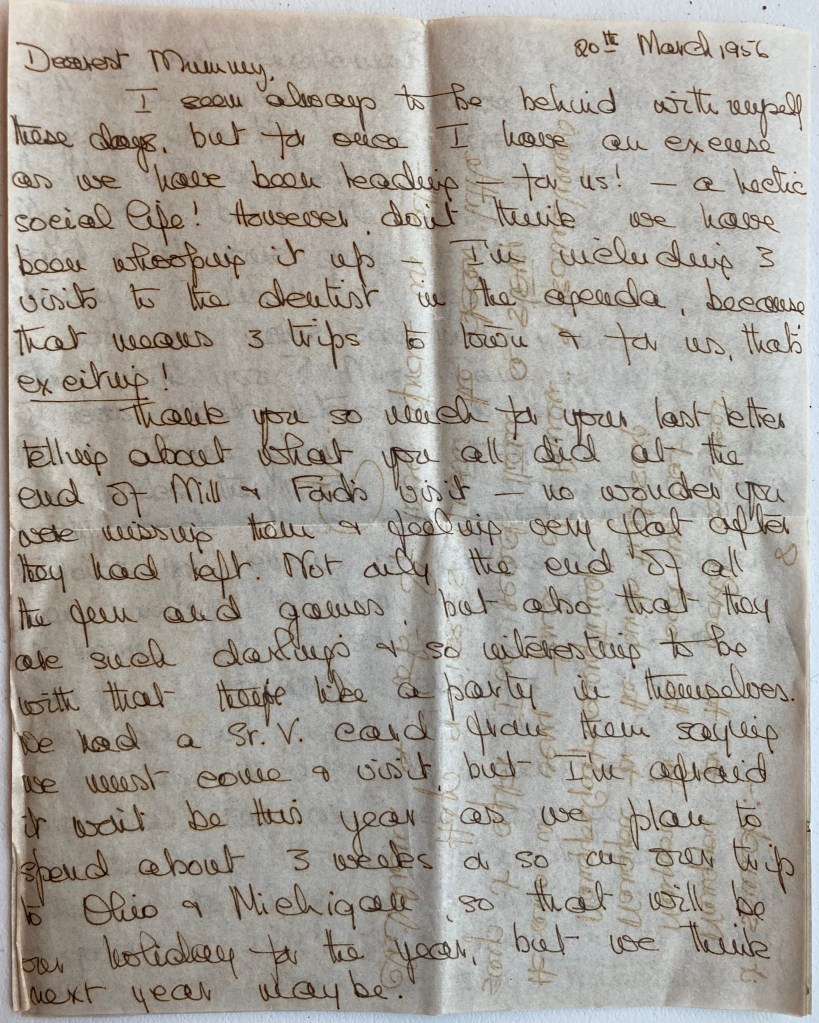 20th March, 1956
Dearest Mummy,
I seem always to be behind with myself
these days, but for once I have an excuse
as we have been leading - for us! - a hectic
social life! However, don't think we have
been whooping it up - I'm including 3
visits to the dentist in the agenda, because
that means 3 trips to town & for us, that's
exciting!
Thank you so much for your last letter
telling about what you all did at the
end of Mill & Ford's visit - no wonder you
were missing them & feeling very flat after
they had left. Not only the end of all
the fun and games, but also that they
are such darlings & so interesting to be
with that they're like a party in themselves.
We had a St. V. card from them saying
we must come & visit, but I'm afraid
it won't be this year as we plan to
spend about 3 weeks or so on our trip
to Ohio & Michigan, so that will be
our holiday for the year, but we think
next year maybe.